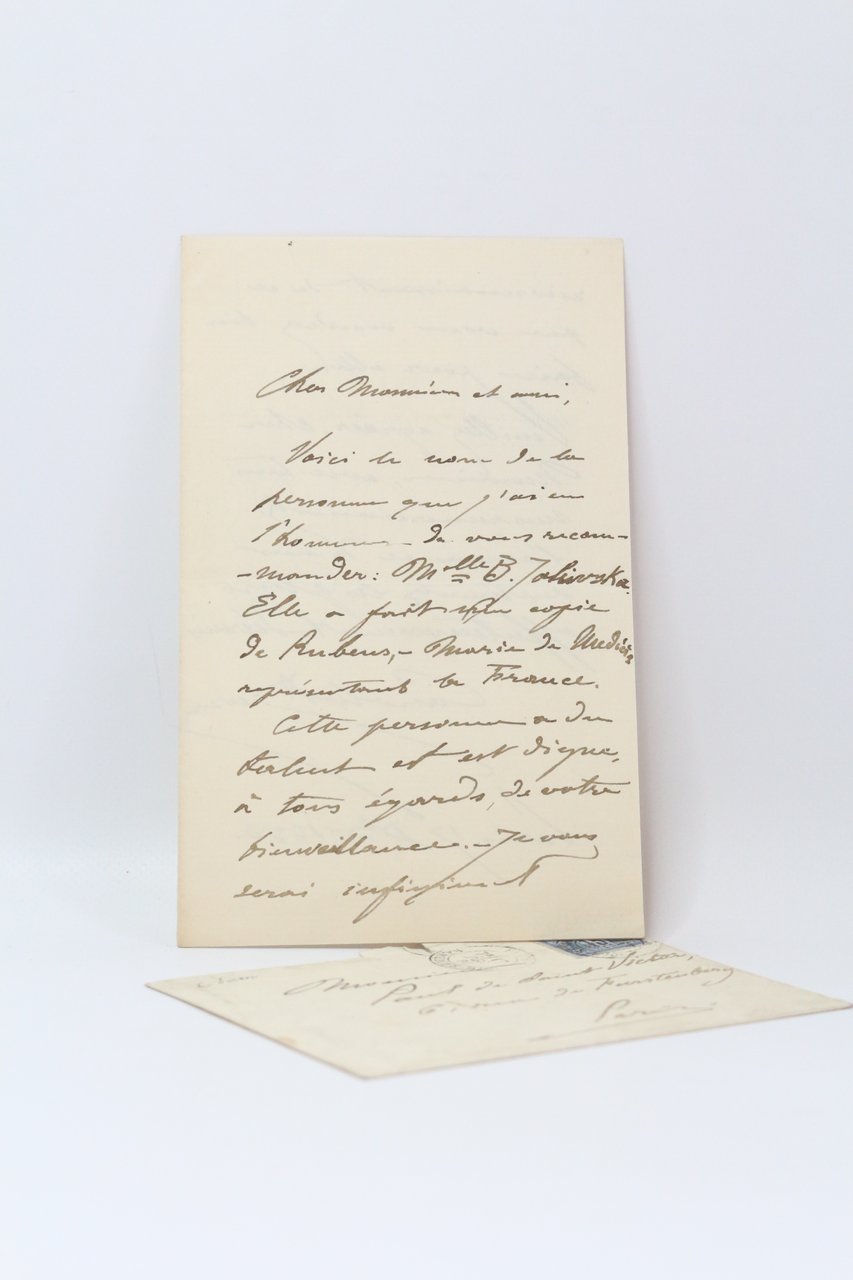 Cher Monsieur et ami,
Voici le nom de la
personne que j'ai eu
l'honneur de vous recom-
-mander: Mlle B.
Elle a fait une copie
de Rubens, - Marie de Medicis
représentant la France.
Cette personne a du
talent et est digne,
à tous égards, de votre
bienveillance. - Je vous
serai infiniment
Monsieur
Paul de Saint Victor,
6 rue de Furstenberg
Paris